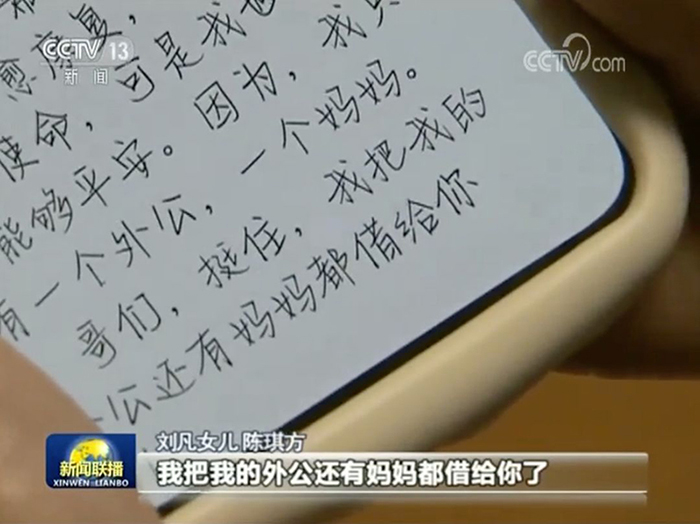 CCTV 13
新闻
CCTV.com
愈康复,
使命,可是我也
能够平安。因为,我只
有一个外公,一个妈妈。
哥们,挺住,我把我的
公还有妈妈都借给你
刘凡女儿 陈琪方
我把我的外公还有妈妈都借给你了
新闻联播
XINWEN LIANBO